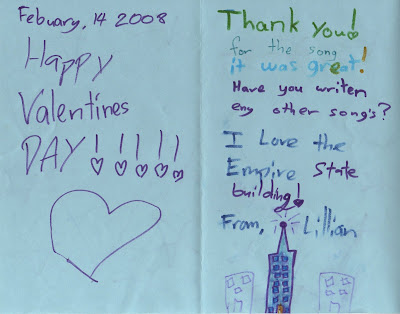 Febuary, 14 2008
Happy
Valentines
DAY!!!!!
Thank you!
for the song
it was great!
Have you writen
eny other song's?
I Love the
Empire State
building!
From, Lillian